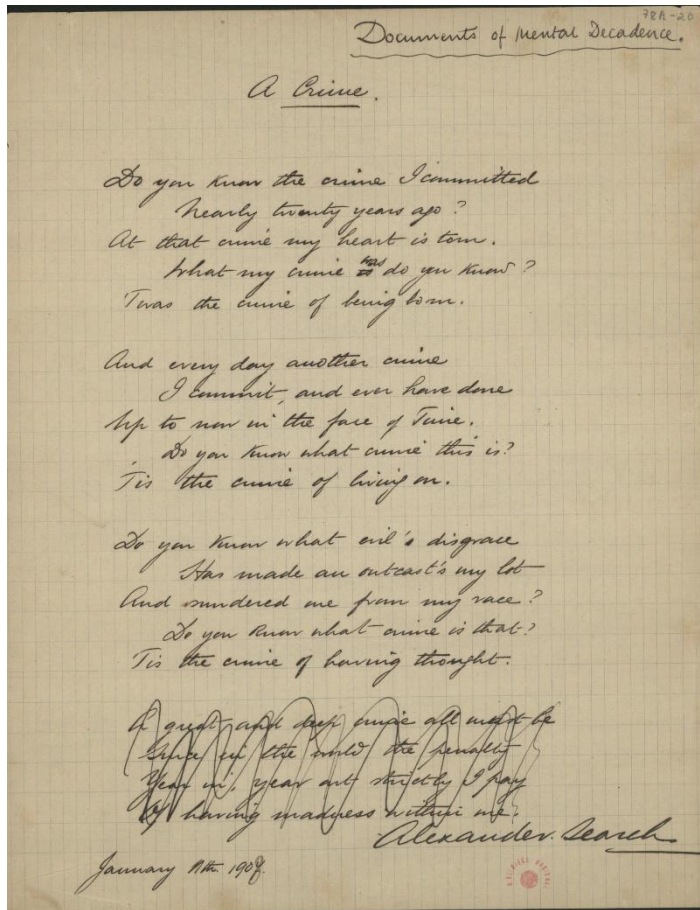 78A-20
Documents of Mental Decadence.
A Crime.
Do you know the crime I committed
Nearly twenty years ago?
At that crime my heart is torn.
What my crime was do you know?
Twas the crime of being born.
And every day another crime
I commit, and ever have done
Up to now in the face of Time.
Do you know what crime this is?
'Tis the crime of living on.
Do you know what evil's disgrace
Has made an outcast's my lot
And sundered me from my race?
Do you know what crime is that?
Tis the crime of having thought.
A great and deep crime all must be
Since in the world the penalty
Year in, year out strictly I pay
Of having madness within me.
Alexander Search
January 1907.